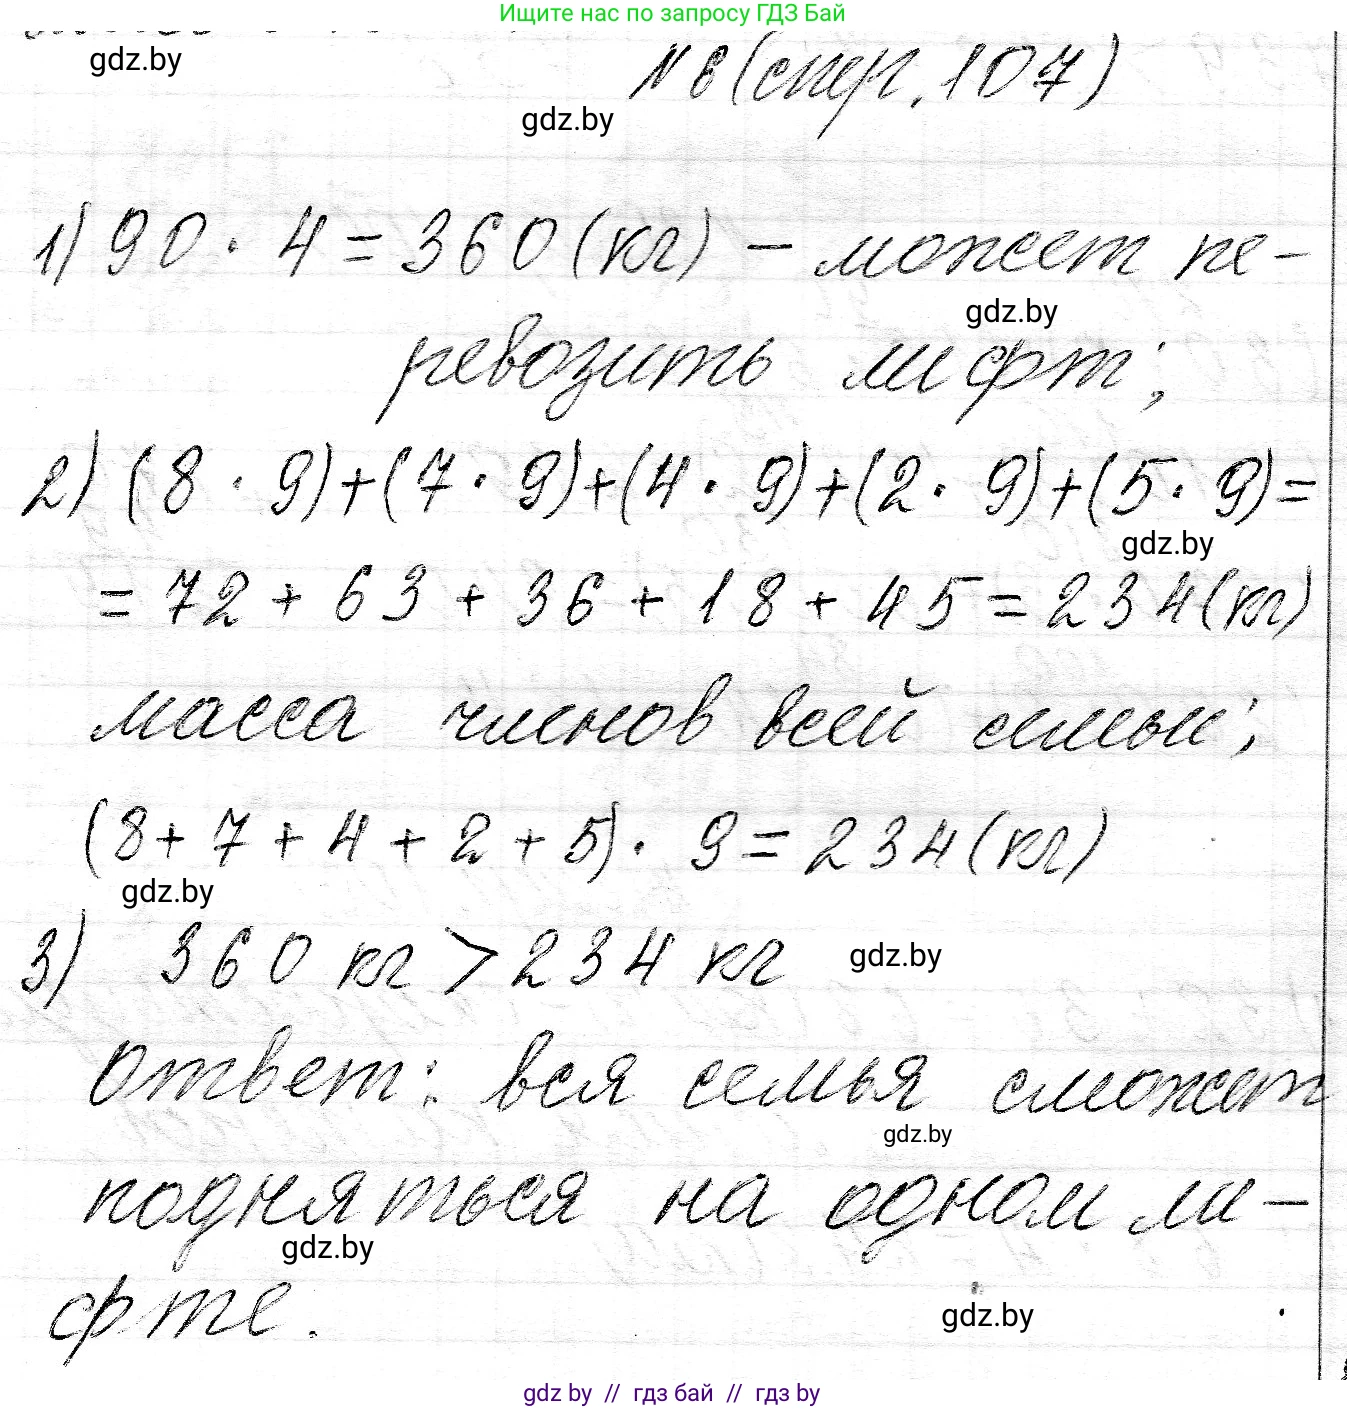 Ищите нас по запросу ГДЗ Бай
gdz.by
№ 6 (стр. 107)
gdz.by
1) 90 · 4 = 360 (кг) – может пе-
gdz.by
ревозить лифт;
2) (8 · 9)+(7 · 9)+(4 · 9)+(2 · 9)+(5 · 9)=
gdz.by
= 72 + 63 + 36 + 18 + 45 = 234 (кг)
масса членов всей семьи;
(8 + 7 + 4 + 2 + 5) · 9 = 234 (кг)
gdz.by
3) 360 кг > 234 кг
gdz.by
Ответ: вся семья сможет
gdz.by
подняться на одном ли-
gdz.by
фте.
gdz.by
gdz by // гдз бай // гдз by